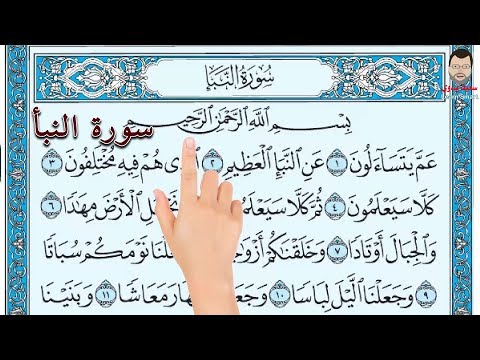 سُورَةُ النَّبَإِ
سورة النبأ
بِسْمِ ٱللَّهِ ٱلرَّحْمَٰنِ ٱلرَّحِيمِ
عَمَّ يَتَسَآءَلُونَ ١ عَنِ ٱلنَّبَإِ ٱلْعَظِيمِ ٢ هُمْ فِيهِ مُخْتَلِفُونَ ٣
كَلَّا سَيَعْلَمُونَ ٤ ثُمَّ كَلَّا ٱلْأَرْضَ مِهَٰدًا ٦
وَٱلْجِبَالَ أَوْتَادًا ٧ وَخَلَقْنَٰكُمْ نَوْمَكُمْ سُبَاتًا
٩ وَجَعَلْنَا ٱلَّيْلَ لِبَاسًا ١٠ مَعَاشًا ١١ وَبَنَيْنَا